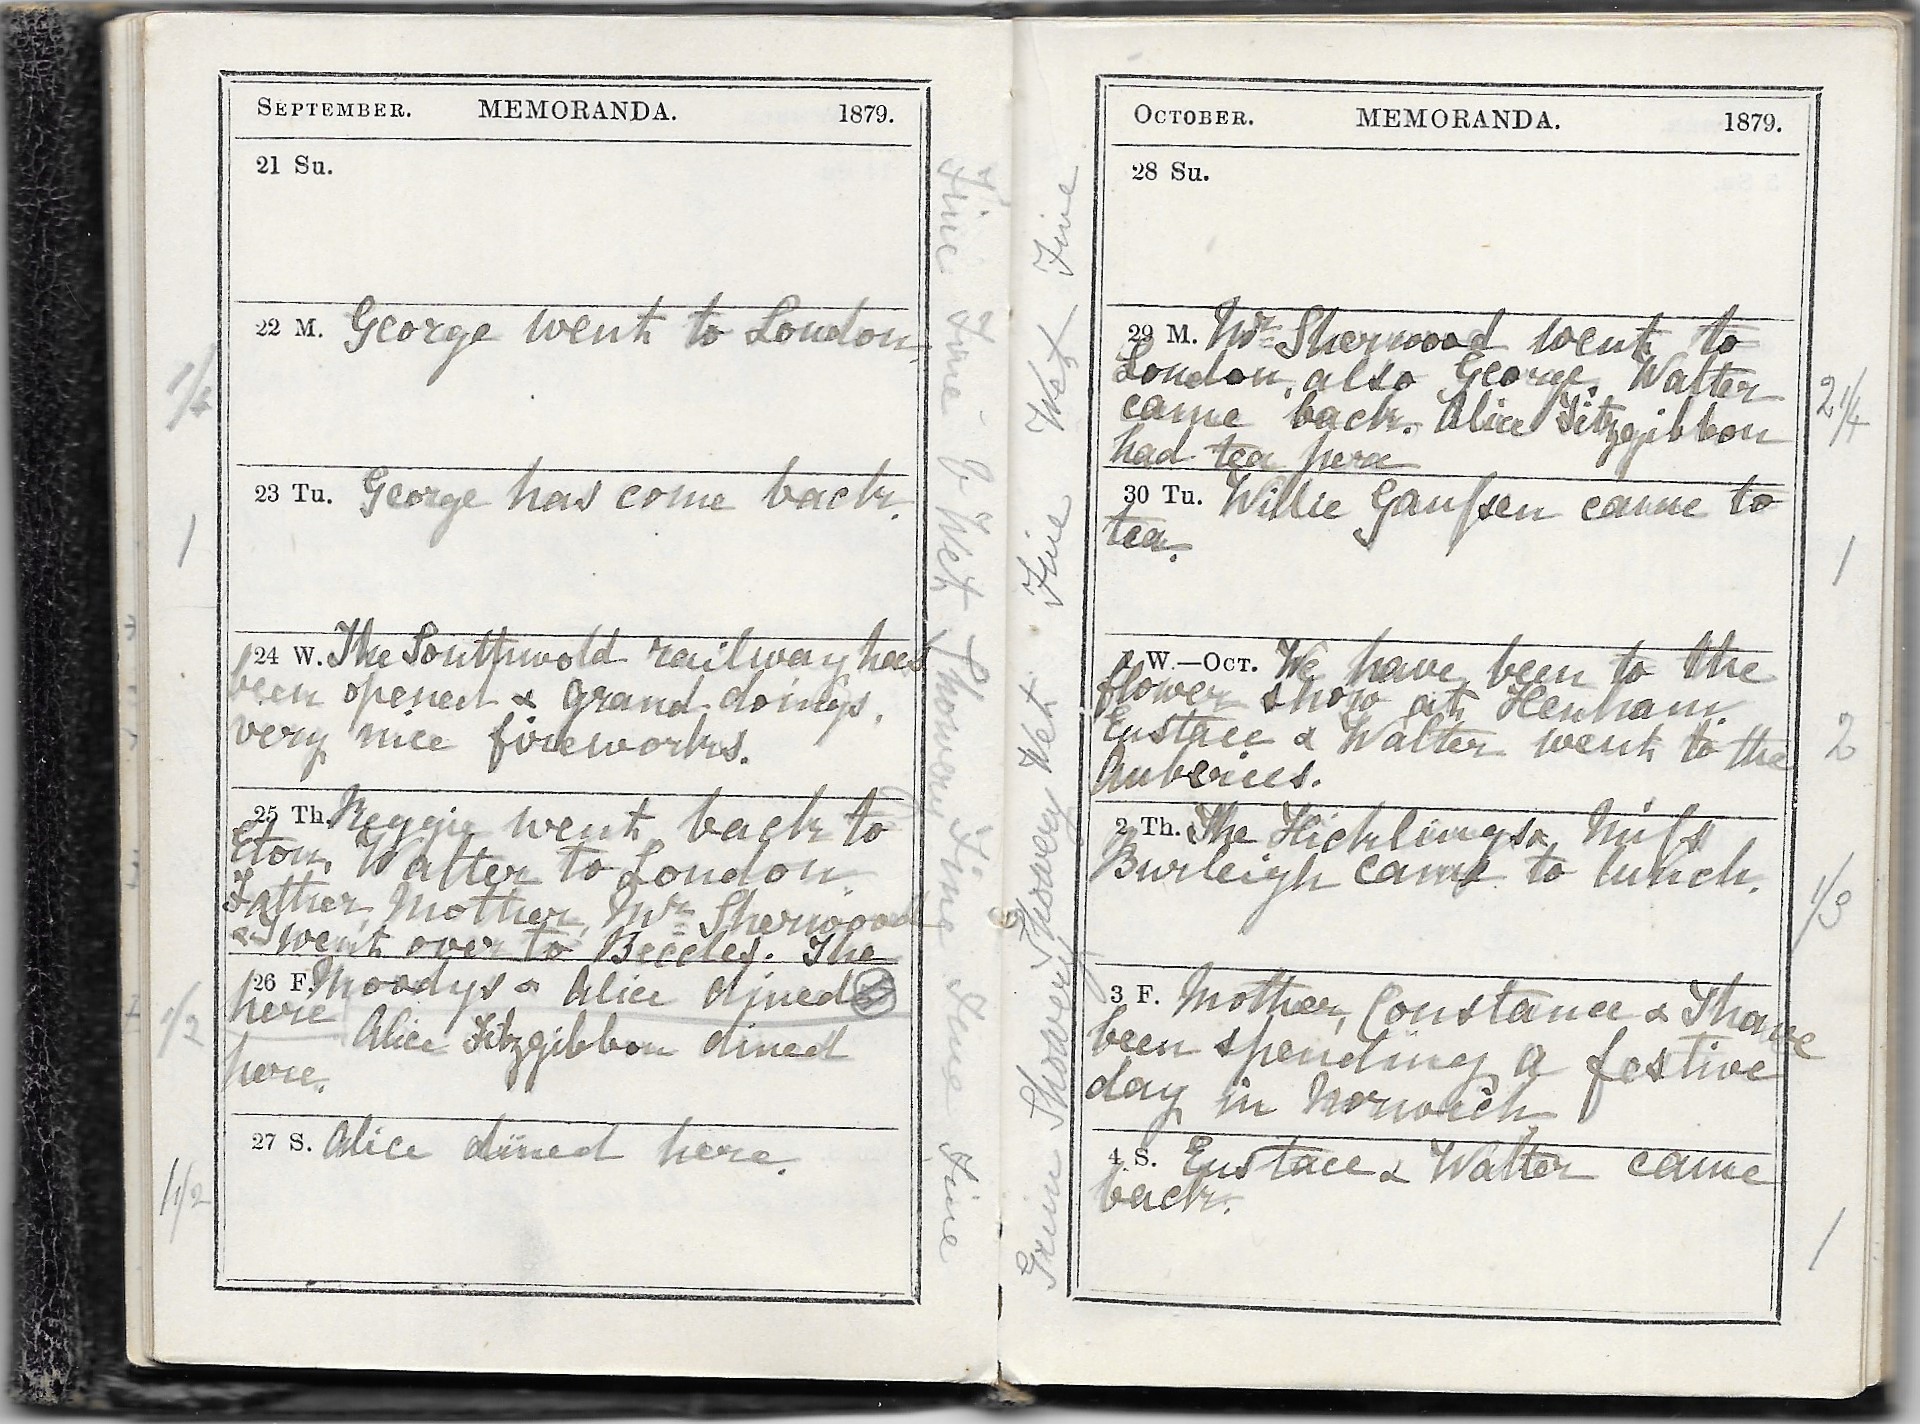 SEPTEMBER. MEMORANDA. 1879.
21 Su.
22 M. George went to London.
1/2
23 Tu. George has come back.
1
24 W. The Southwold railway has
been opened & grand doings,
very nice fireworks.
25 Th. Reggie went back to
Eton, Walter to London.
Father, Mother, Mr Sherwood
& I went over to Beccles. The
26 F. Moodys & Alice dined
here
Alice Fitzgibbon dined
here.
1/2
27 S. Alice dined here.
1 1/2
Fine Fine Wet Showery Fine Fine Fine
OCTOBER. MEMORANDA. 1879.
28 Su.
29 M. Mr Sherwood went to
London, also George. Walter
came back. Alice Fitzgibbon
had tea here
2 1/4
30 Tu. Willie Gaussen came to
tea.
1
1 W.—OCT. We have been to the
flower show at Henham.
Eustace & Walter went to the
Auberies.
2
2 Th. The Hicklings & Miss
Burleigh came to lunch.
1/3
3 F. Mother, Constance & I have
been spending a festive
day in Norwich
4 S. Eustace & Walter came
back.
1
Showery Showery Wet Fine Wet Fine